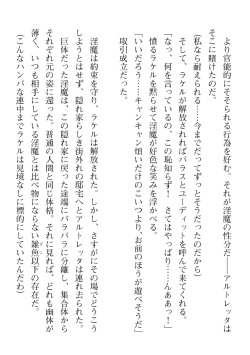 より官能的にそそられる行為を好む。それが淫魔の性分だ――アルトレッタは
そこに賭けたのだ。
(私なら耐えられる……今までだってずっとそうだったのだから)
そして、ラケルが解放されればパラスとユーディットを呼んで来てくれる。
「なっ、何を言っているの、この恥知らず！　さてはやっぱり……んああっ！」
憤るラケルを黙らせて淫魔が好色な笑みを浮かべる。
「いいだろう……キャンキャン煩いだけのこいつより、お前のほうが遊べそうだ」
取引成立だった。
淫魔は約束を守り、ラケルは解放された。しかし、さすがにその場でどうこう
しようとはせず、隠れ家らしき街外れの邸宅へとアルトレッタは連れ去られた。
巨体だった淫魔は、この隠れ家に戻った途端にバラバラに分離し、集合体から
それぞれ元の姿に還った。普通の人間と同じ体格。それに見れば、どれも幽体が
薄く、いつも相手にしている淫魔とは比べ物にならない雑魚以下の存在だ。
(こんなハンパな連中までラケルは見境なしに標的にしていたんだわ)